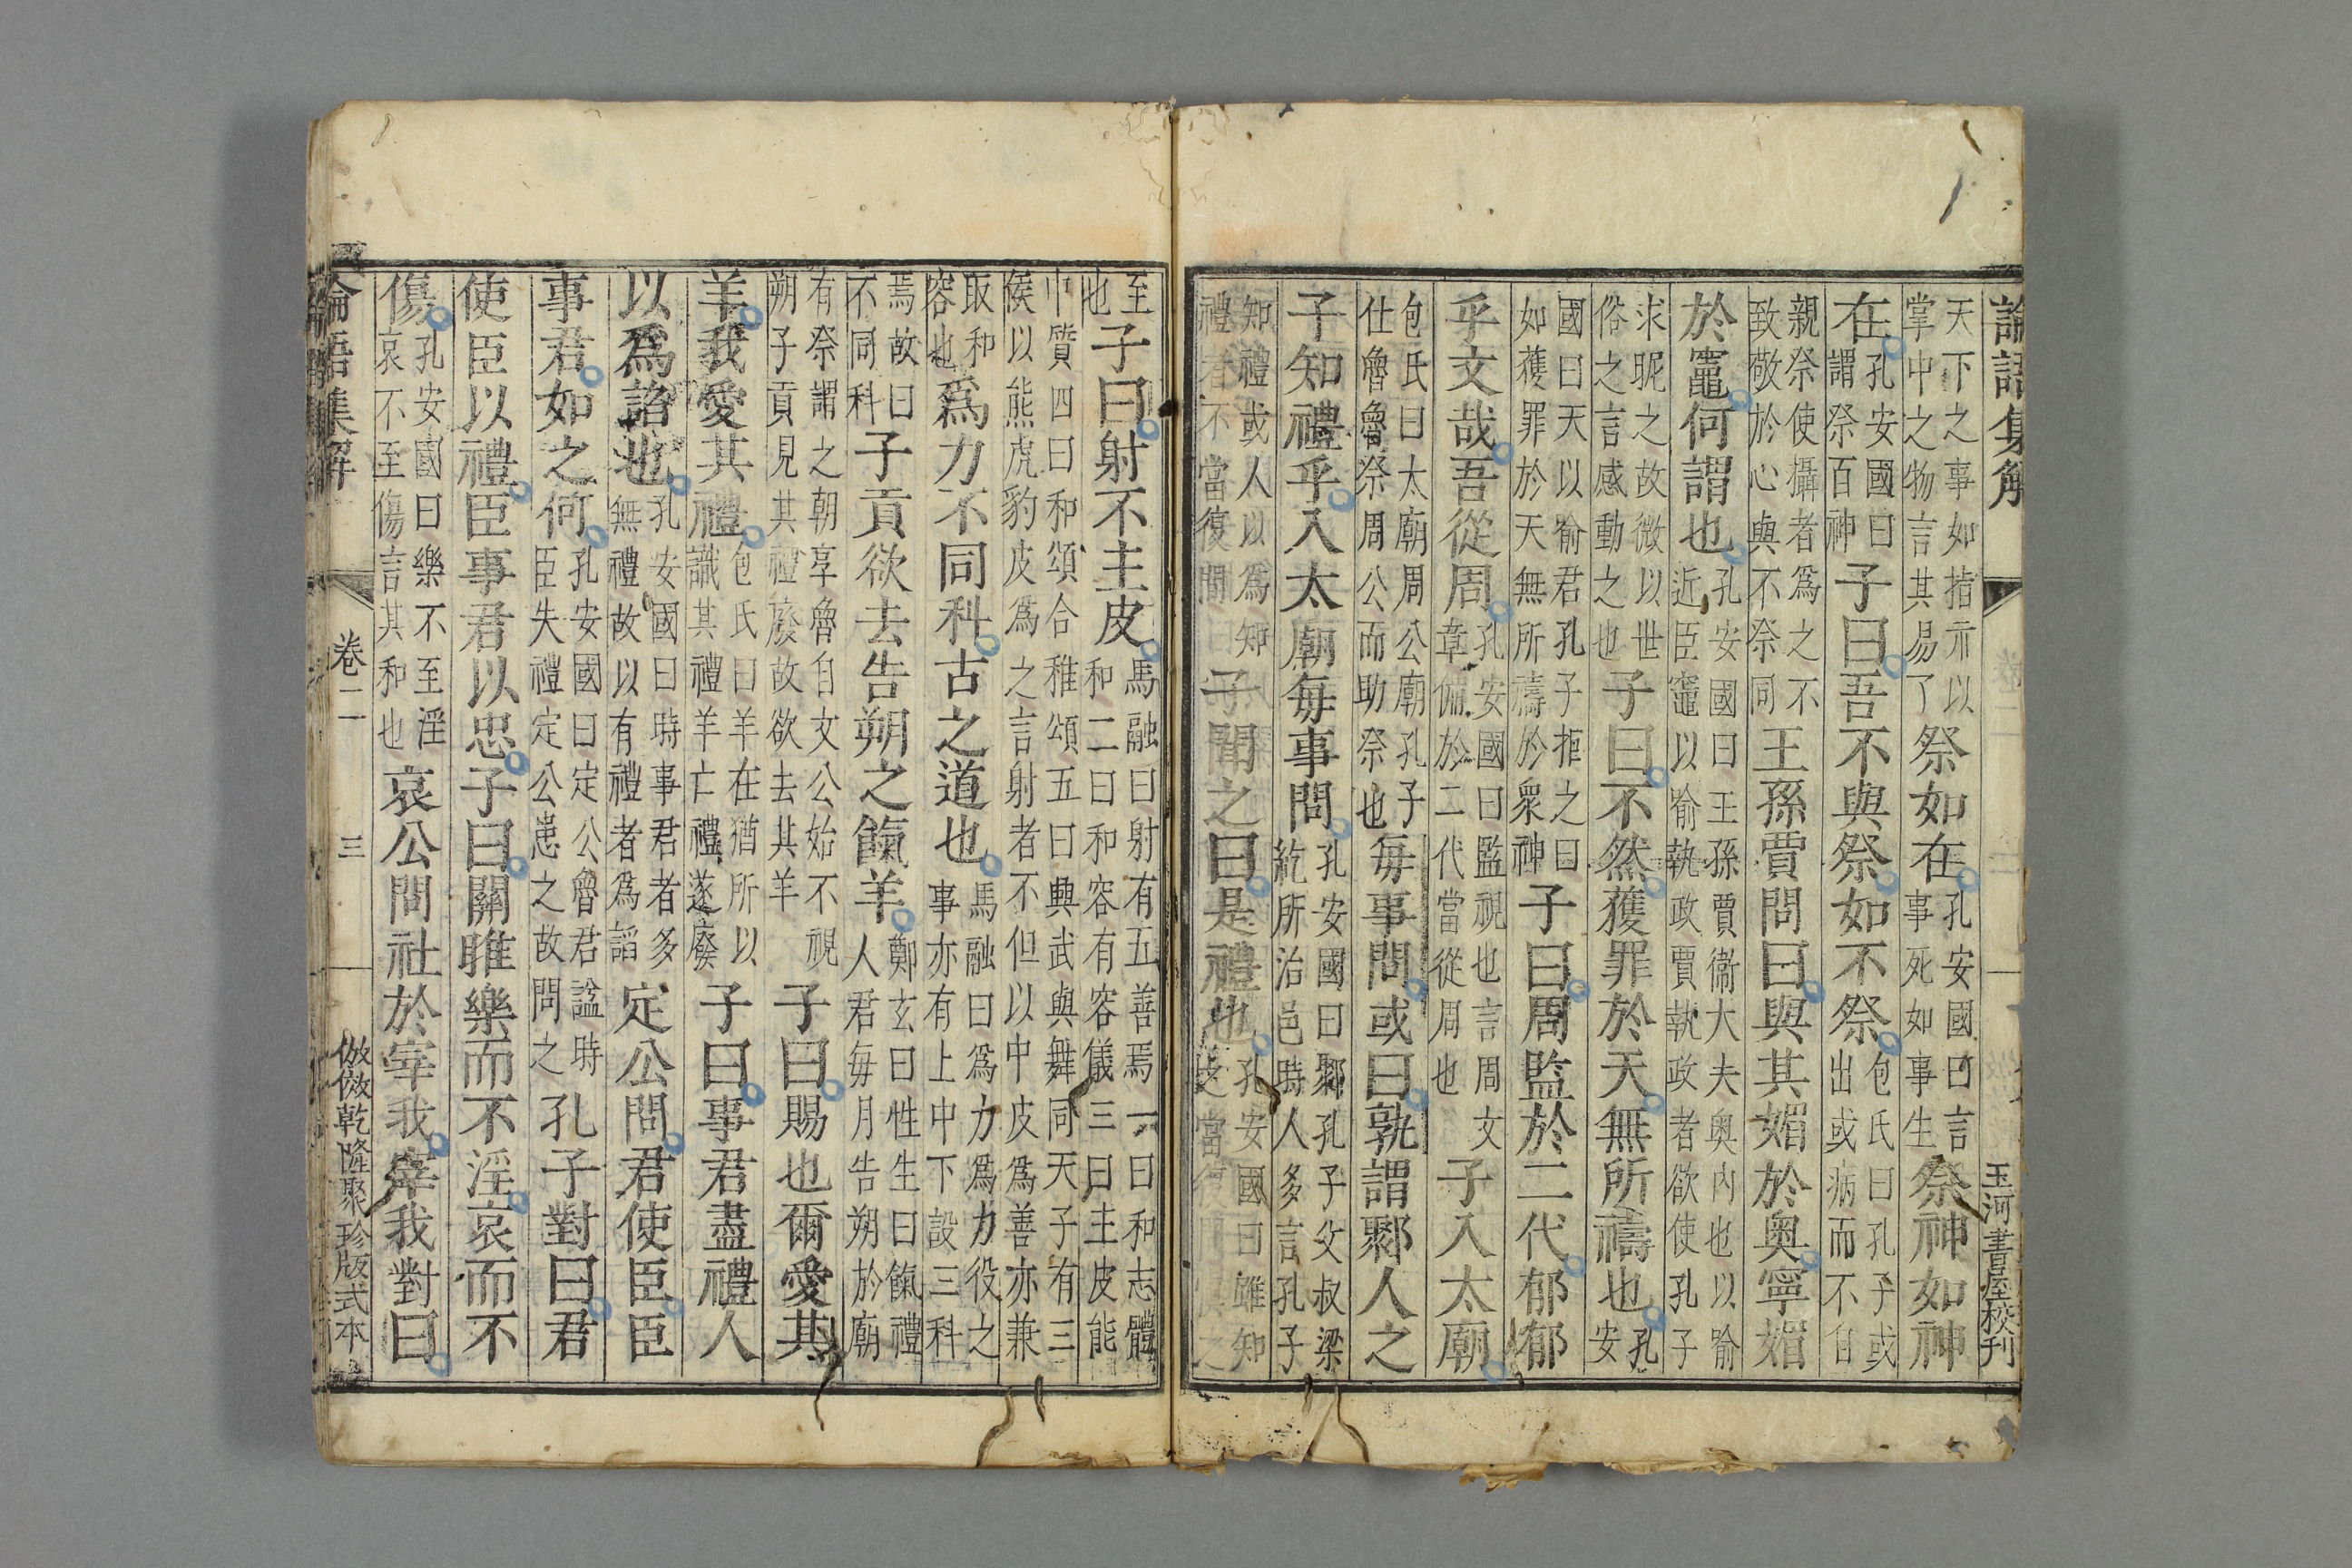 論語集解 玉河書屋校刊
天下之事如指示以掌中之物言其易了祭如在孔安國曰言事死如事生祭神如神
在孔安國曰謂祭百神子曰吾不與祭如不祭包氏曰孔子或出或病而不自
親祭使攝者爲之不致敬於心與不祭同王孫賈問曰與其媚於奧寧媚
於竈何謂也孔安國曰王孫賈衞大夫奧內也以喻近臣竈以喻執政賈執政者欲使孔子
求昵之故微以世俗之言感動之也子曰不然獲罪於天無所禱也孔安
國曰天以喻君孔子拒之曰如獲罪於天無所禱於衆神子曰周監於二代郁郁
乎文哉吾從周孔安國曰監視也言周文章備於二代當從周也子入太廟
包氏曰太廟周公廟孔子仕魯魯祭周公而助祭也每事問或曰孰謂鄹人之
子知禮乎入太廟每事問孔安國曰鄹孔子父叔梁紇所治邑時人多言孔子
知禮或人以爲知禮者不當復問子聞之曰是禮也孔安國曰雖知之當復問慎之
至也子曰射不主皮馬融曰射有五善焉一曰和志體和二曰和容有容儀三曰主皮能
中質四曰和頌合稚頌五曰興武與舞同天子有三侯以熊虎豹皮爲之言射者不但以中皮爲善亦兼
取和容也爲力不同科古之道也馬融曰爲力爲力役之事亦有上中下設三科
焉故曰不同科子貢欲去告朔之餼羊鄭玄曰牲生曰餼禮人君每月告朔於廟
有祭謂之朝享魯自文公始不視朔子貢見其禮廢故欲去其羊子曰賜也爾愛其
羊我愛其禮包氏曰羊在猶所以識其禮羊亡禮遂廢子曰事君盡禮人
以爲諂也孔安國曰時事君者多無禮故以有禮者爲諂定公問君使臣臣
事君如之何孔安國曰定公魯君謚時臣失禮定公患之故問之孔子對曰君
使臣以禮臣事君以忠子曰關雎樂而不淫哀而不
傷孔安國曰樂不至淫哀不至傷言其和也哀公問社於宰我宰我對曰
論語集解 卷二 三 倣倣乾隆聚珍版式本